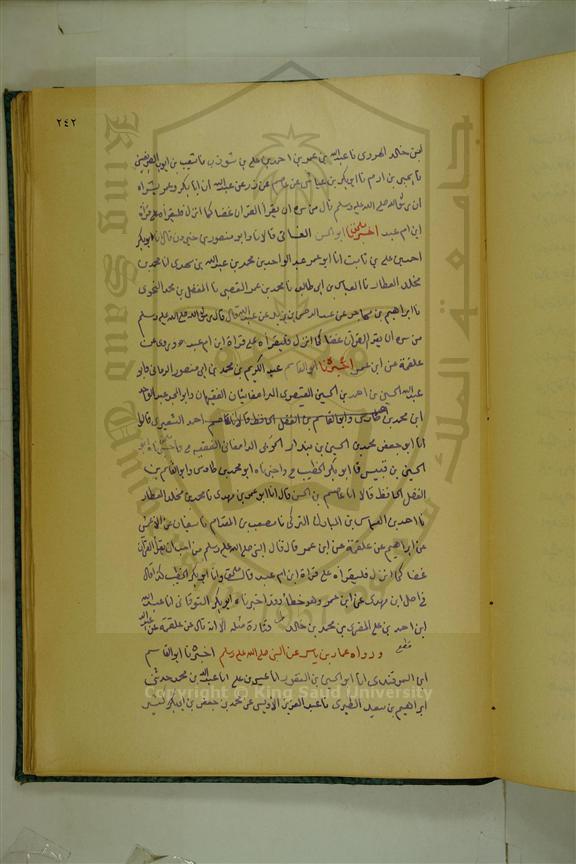 ٢٤٢
ابن خالد الهروى نا عبد الله بن عمر بن احمد بن على بن شوذب نا شعيب بن ايوب الصريفينى
نا يحيى بن ادم نا ابو بكر بن عياش عن عاصم عن زر عن عبد الله ان ابا بكر وعمر بشراه
ان رسول الله صلى الله عليه وسلم قال من سره ان يقرأ القران غضا كما انزل فليقرأه على قرأة
ابن ام عبد اخبرنا ابو الحسن قالا نا وابو منصور بن خيرون قال انا ابو بكر
احمد بن على بن ثابت انا ابو عمر عبد الواحد بن محمد بن عبد الله بن مهدى انا محمد بن
مخلد العطار نا العباس بن ابى طالب نا محمد بن عمر القصبى نا المفضل بن محمد النحوى
نا ابراهيم بن مهاجر عن عبد الرحمن بن يزيد عن عبد الله قال قال رسول الله صلى الله عليه وسلم
من سره ان يقرأ القران غضا كما انزل فليقرأه على قرأة ابن ام عبد وروى عن
علقمة عن ابن عمر اخبرنا ابو القاسم عبد الكريم بن محمد بن ابى منصور الرمانى وابو
عبد الله الحسين بن احمد بن الحسين القيصرى الدامغانيان الفقيهان وابو
ابن محمد بن وابو القاسم بن الفضل الحافظ قالوا انا احمد الشعيرى قالوا
انا ابو جعفر محمد بن الحسين بن بندار الدامغانى الفقيه ح واخبرناه ابو
الحسين بن قبيس نا ابو بكر الخطيب ح واخبرناه ابو محمد بن طاوس وابو القاسم بن
الفضل الحافظ قالا انا عاصم بن الحسن قال انا ابو عمر بن مهدى نا محمد بن مخلد العطار
نا احمد بن العباس بن المبارك التركى نا مصعب بن المقدام نا سفيان عن الاعمش
عن ابراهيم عن علقمة عن ابن عمر قال قال النبى صلى الله عليه وسلم من احب ان يقرأ القرآن
غضا كما انزل فليقرأه على قرأة ابن ام عبد قال وانا ابو بكر الخطيب كذا قال
فى اصل ابن مهدى عن ابن عمر وهو خطأ وقد اخبرناه ابو بكر البرقانى انا عبد الله
ابن احمد بن على المقرى بن محمد بن خالد مثله الا انه قال عن علقمة عن عبد الله
ورواه عمار بن ياسر عن النبى صلى الله عليه وسلم اخبرنا ابو القاسم
ابن السمرقندى انا ابو الحسين بن النقور انا عيسى بن على انا عبد الله بن محمد حدثنى
ابراهيم بن سعيد الطبرى نا عبد العزيز الاويسى عن محمد بن جعفر بن ابى كثير
King Saud University
جامعة الملك
Copyright © King Saud University